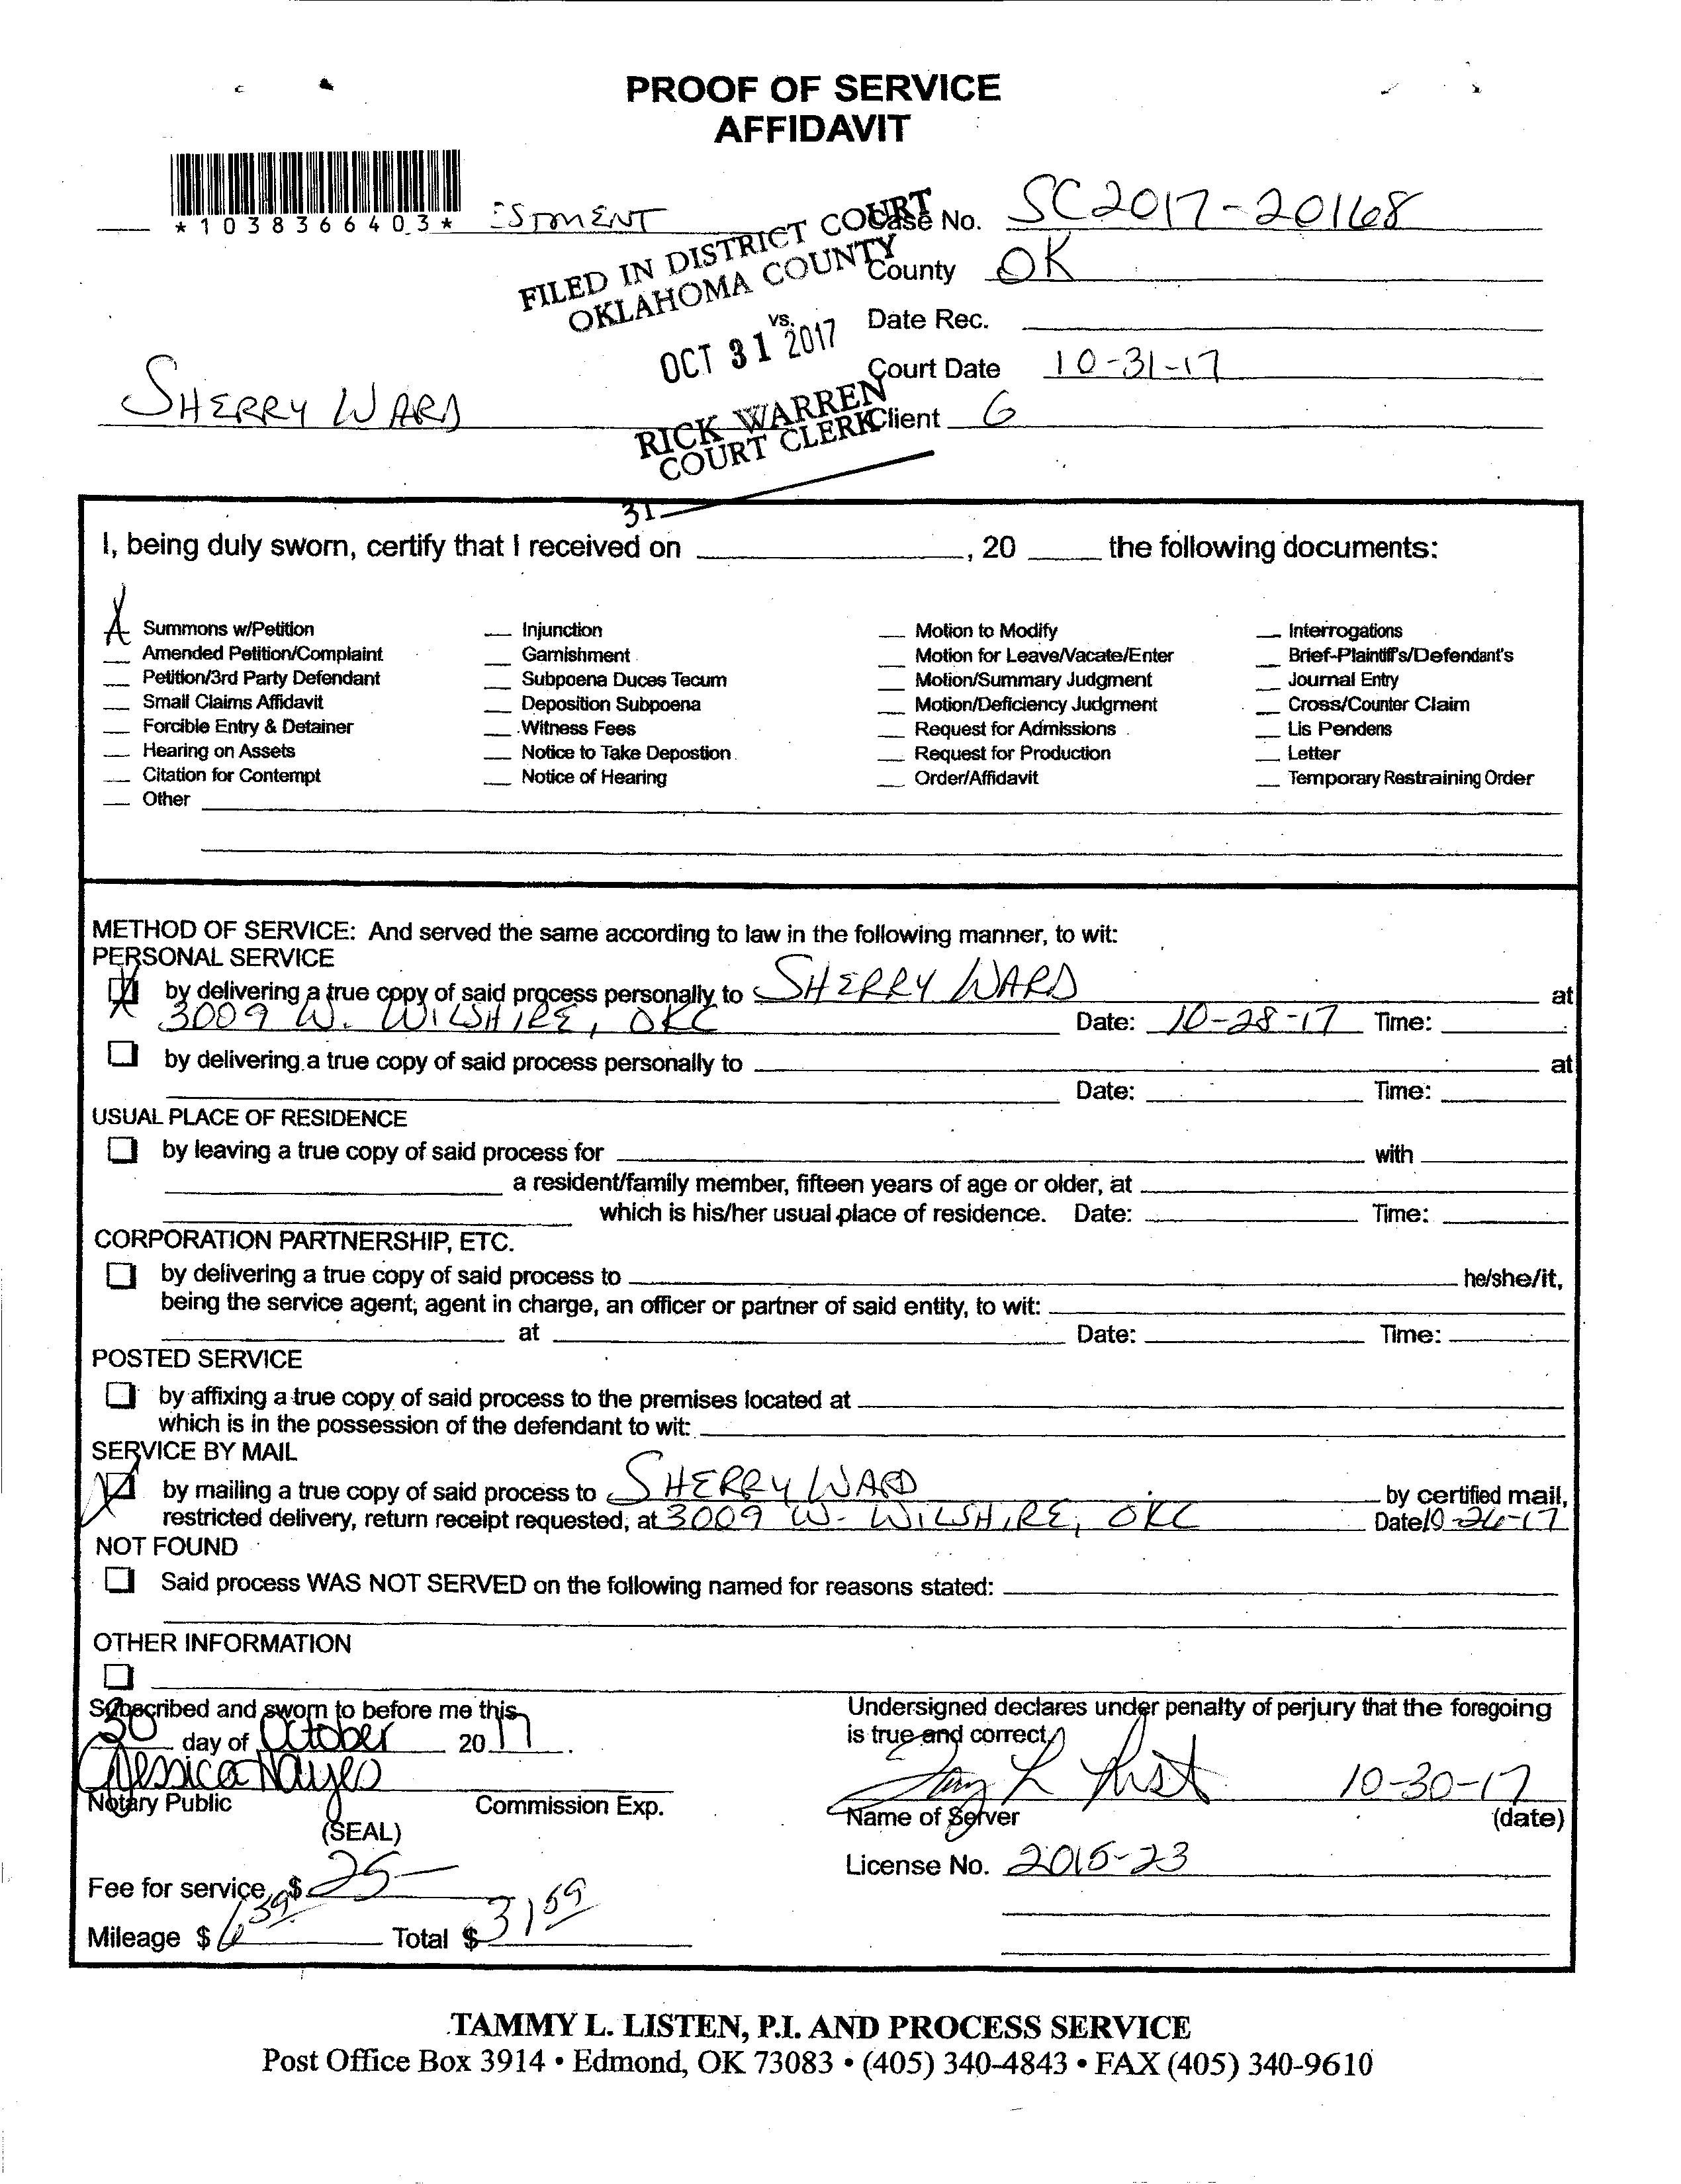 PROOF OF SERVICE
AFFIDAVIT
*1038366403*
ESTMENT
FILED IN DISTRICT COURT
OKLAHOMA COUNTY
OCT 31 2017
RICK WARREN
COURT CLERK
31
Case No. SC2017-20168
County OK
vs.
Date Rec.
Court Date 10-31-17
SHERRY WARD
Client G
I, being duly sworn, certify that I received on , 20 the following documents:
X Summons w/Petition
Amended Petition/Complaint
Petition/3rd Party Defendant
Small Claims Affidavit
Forcible Entry & Detainer
Hearing on Assets
Citation for Contempt
Other
Injunction
Garnishment
Subpoena Duces Tecum
Deposition Subpoena
Witness Fees
Notice to Take Depostion
Notice of Hearing
Motion to Modify
Motion for Leave/Vacate/Enter
Motion/Summary Judgment
Motion/Deficiency Judgment
Request for Admissions
Request for Production
Order/Affidavit
Interrogations
Brief-Plaintiff's/Defendant's
Journal Entry
Cross/Counter Claim
Lis Pendens
Letter
Temporary Restraining Order
METHOD OF SERVICE: And served the same according to law in the following manner, to wit:
PERSONAL SERVICE
X by delivering a true copy of said process personally to SHERRY WARD at
3009 W. WILSHIRE, OKC Date: 10-28-17 Time:
by delivering a true copy of said process personally to at
Date: Time:
USUAL PLACE OF RESIDENCE
by leaving a true copy of said process for with
a resident/family member, fifteen years of age or older, at
which is his/her usual place of residence. Date: Time:
CORPORATION PARTNERSHIP, ETC.
by delivering a true copy of said process to he/she/it,
being the service agent, agent in charge, an officer or partner of said entity, to wit:
at Date: Time:
POSTED SERVICE
by affixing a true copy of said process to the premises located at
which is in the possession of the defendant to wit:
SERVICE BY MAIL
X by mailing a true copy of said process to SHERRY WARD by certified mail,
restricted delivery, return receipt requested, at 3009 W. WILSHIRE, OKC Date 10-26-17
NOT FOUND
Said process WAS NOT SERVED on the following named for reasons stated:
OTHER INFORMATION
Subscribed and sworn to before me this
30 day of October 2017.
Jessica Hayes
Notary Public Commission Exp.
(SEAL)
Fee for service $ 25-
Mileage $ 6 Total $ 31
Undersigned declares under penalty of perjury that the foregoing
is true and correct.
10-30-17
Name of Server (date)
License No. 2015-23
TAMMY L. LISTEN, P.I. AND PROCESS SERVICE
Post Office Box 3914 • Edmond, OK 73083 • (405) 340-4843 • FAX (405) 340-9610